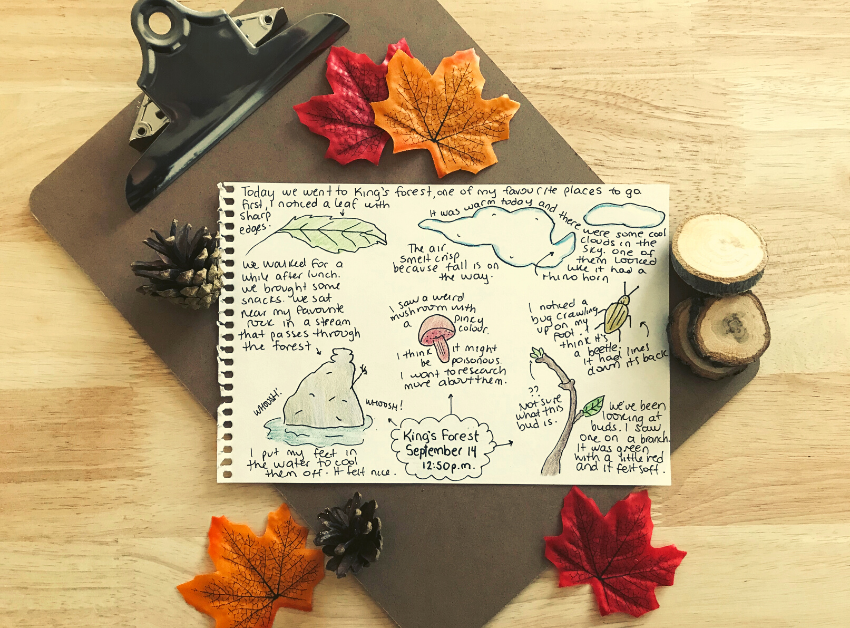 Today we went to King's forest, one of my favourite places to go
first, I noticed a leaf with
sharp
edges.
It was warm today and there
were some cool
clouds in the
sky. one of
them looked
like it had a
rhino horn
The air
smelt crisp
because fall is on
the way.
we walked for a
while after lunch.
we brought some
snacks. we sat
near my favourite
rock in a stream
that passes through
the forest
I saw a weird
mushroom with
a pinky
colour.
I think it might
be poisonous.
I want to research
more about them.
I noticed a
bug crawling
up on my
foot. I
think it's
a beetle.
it had lines
down it's back
WHOOSH!
WHOOSH!
I put my feet in
the water to cool
them off. It felt nice.
King's Forest
September 14
12:50 p.m.
??
Not sure
what this
bud is.
we've been
looking at
buds. I saw
one on a branch.
It was green
with a little red
and it felt soft.